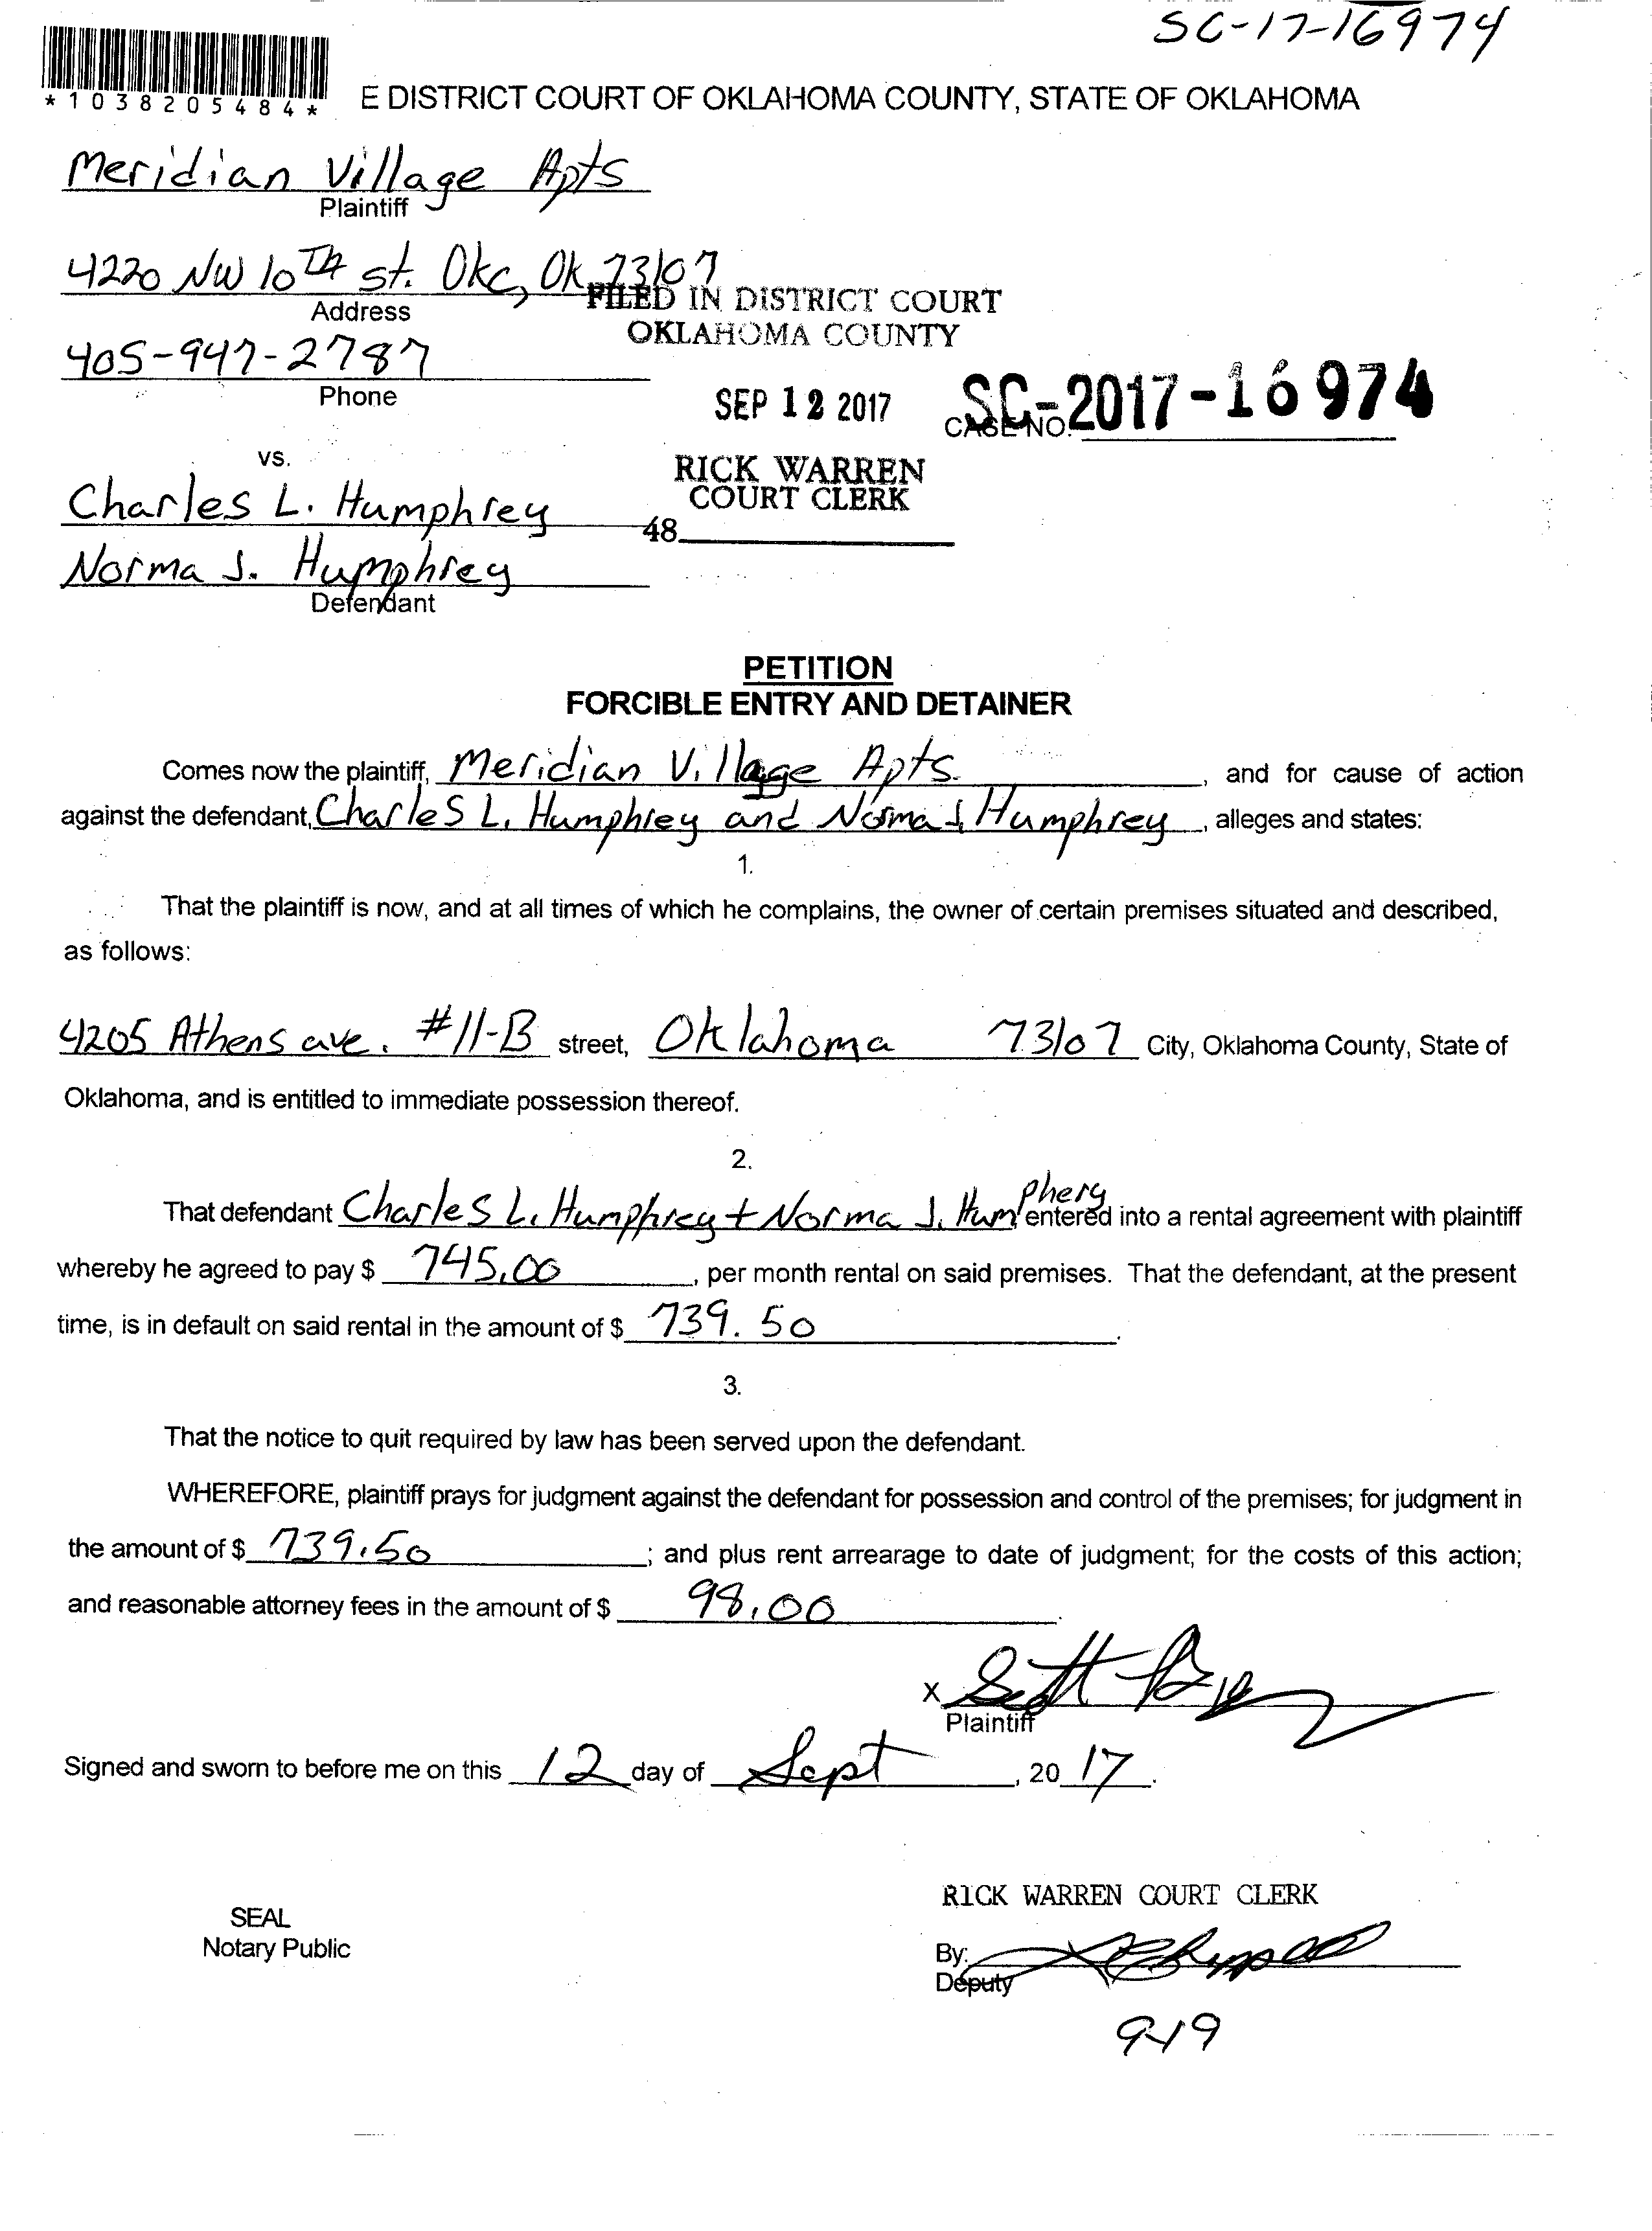 SC-17-16974
*1038205484*
E DISTRICT COURT OF OKLAHOMA COUNTY, STATE OF OKLAHOMA
Meridian Village Apts
Plaintiff
4220 NW 10TH st. Okc, Ok 73107
Address
FILED IN DISTRICT COURT
OKLAHOMA COUNTY
405-947-2787
Phone
SEP 12 2017
CASE NO. SC-2017-16974
vs.
RICK WARREN
COURT CLERK
Charles L. Humphrey
48
Norma J. Humphrey
Defendant
PETITION
FORCIBLE ENTRY AND DETAINER
Comes now the plaintiff, Meridian Village Apts. , and for cause of action
against the defendant, Charles L. Humphrey and Norma J. Humphrey , alleges and states:
1.
That the plaintiff is now, and at all times of which he complains, the owner of certain premises situated and described,
as follows:
4205 Athens ave. #11-B street, Oklahoma 73107 City, Oklahoma County, State of
Oklahoma, and is entitled to immediate possession thereof.
2.
That defendant Charles L. Humphrey + Norma J. Humphery entered into a rental agreement with plaintiff
whereby he agreed to pay $ 745.00 , per month rental on said premises. That the defendant, at the present
time, is in default on said rental in the amount of $ 739.50 .
3.
That the notice to quit required by law has been served upon the defendant.
WHEREFORE, plaintiff prays for judgment against the defendant for possession and control of the premises; for judgment in
the amount of $ 739.50 ; and plus rent arrearage to date of judgment; for the costs of this action;
and reasonable attorney fees in the amount of $ 98.00 .
X Scott
Plaintiff
Signed and sworn to before me on this 12 day of Sept , 20 17 .
RICK WARREN COURT CLERK
SEAL
Notary Public
By:
Deputy
9-19